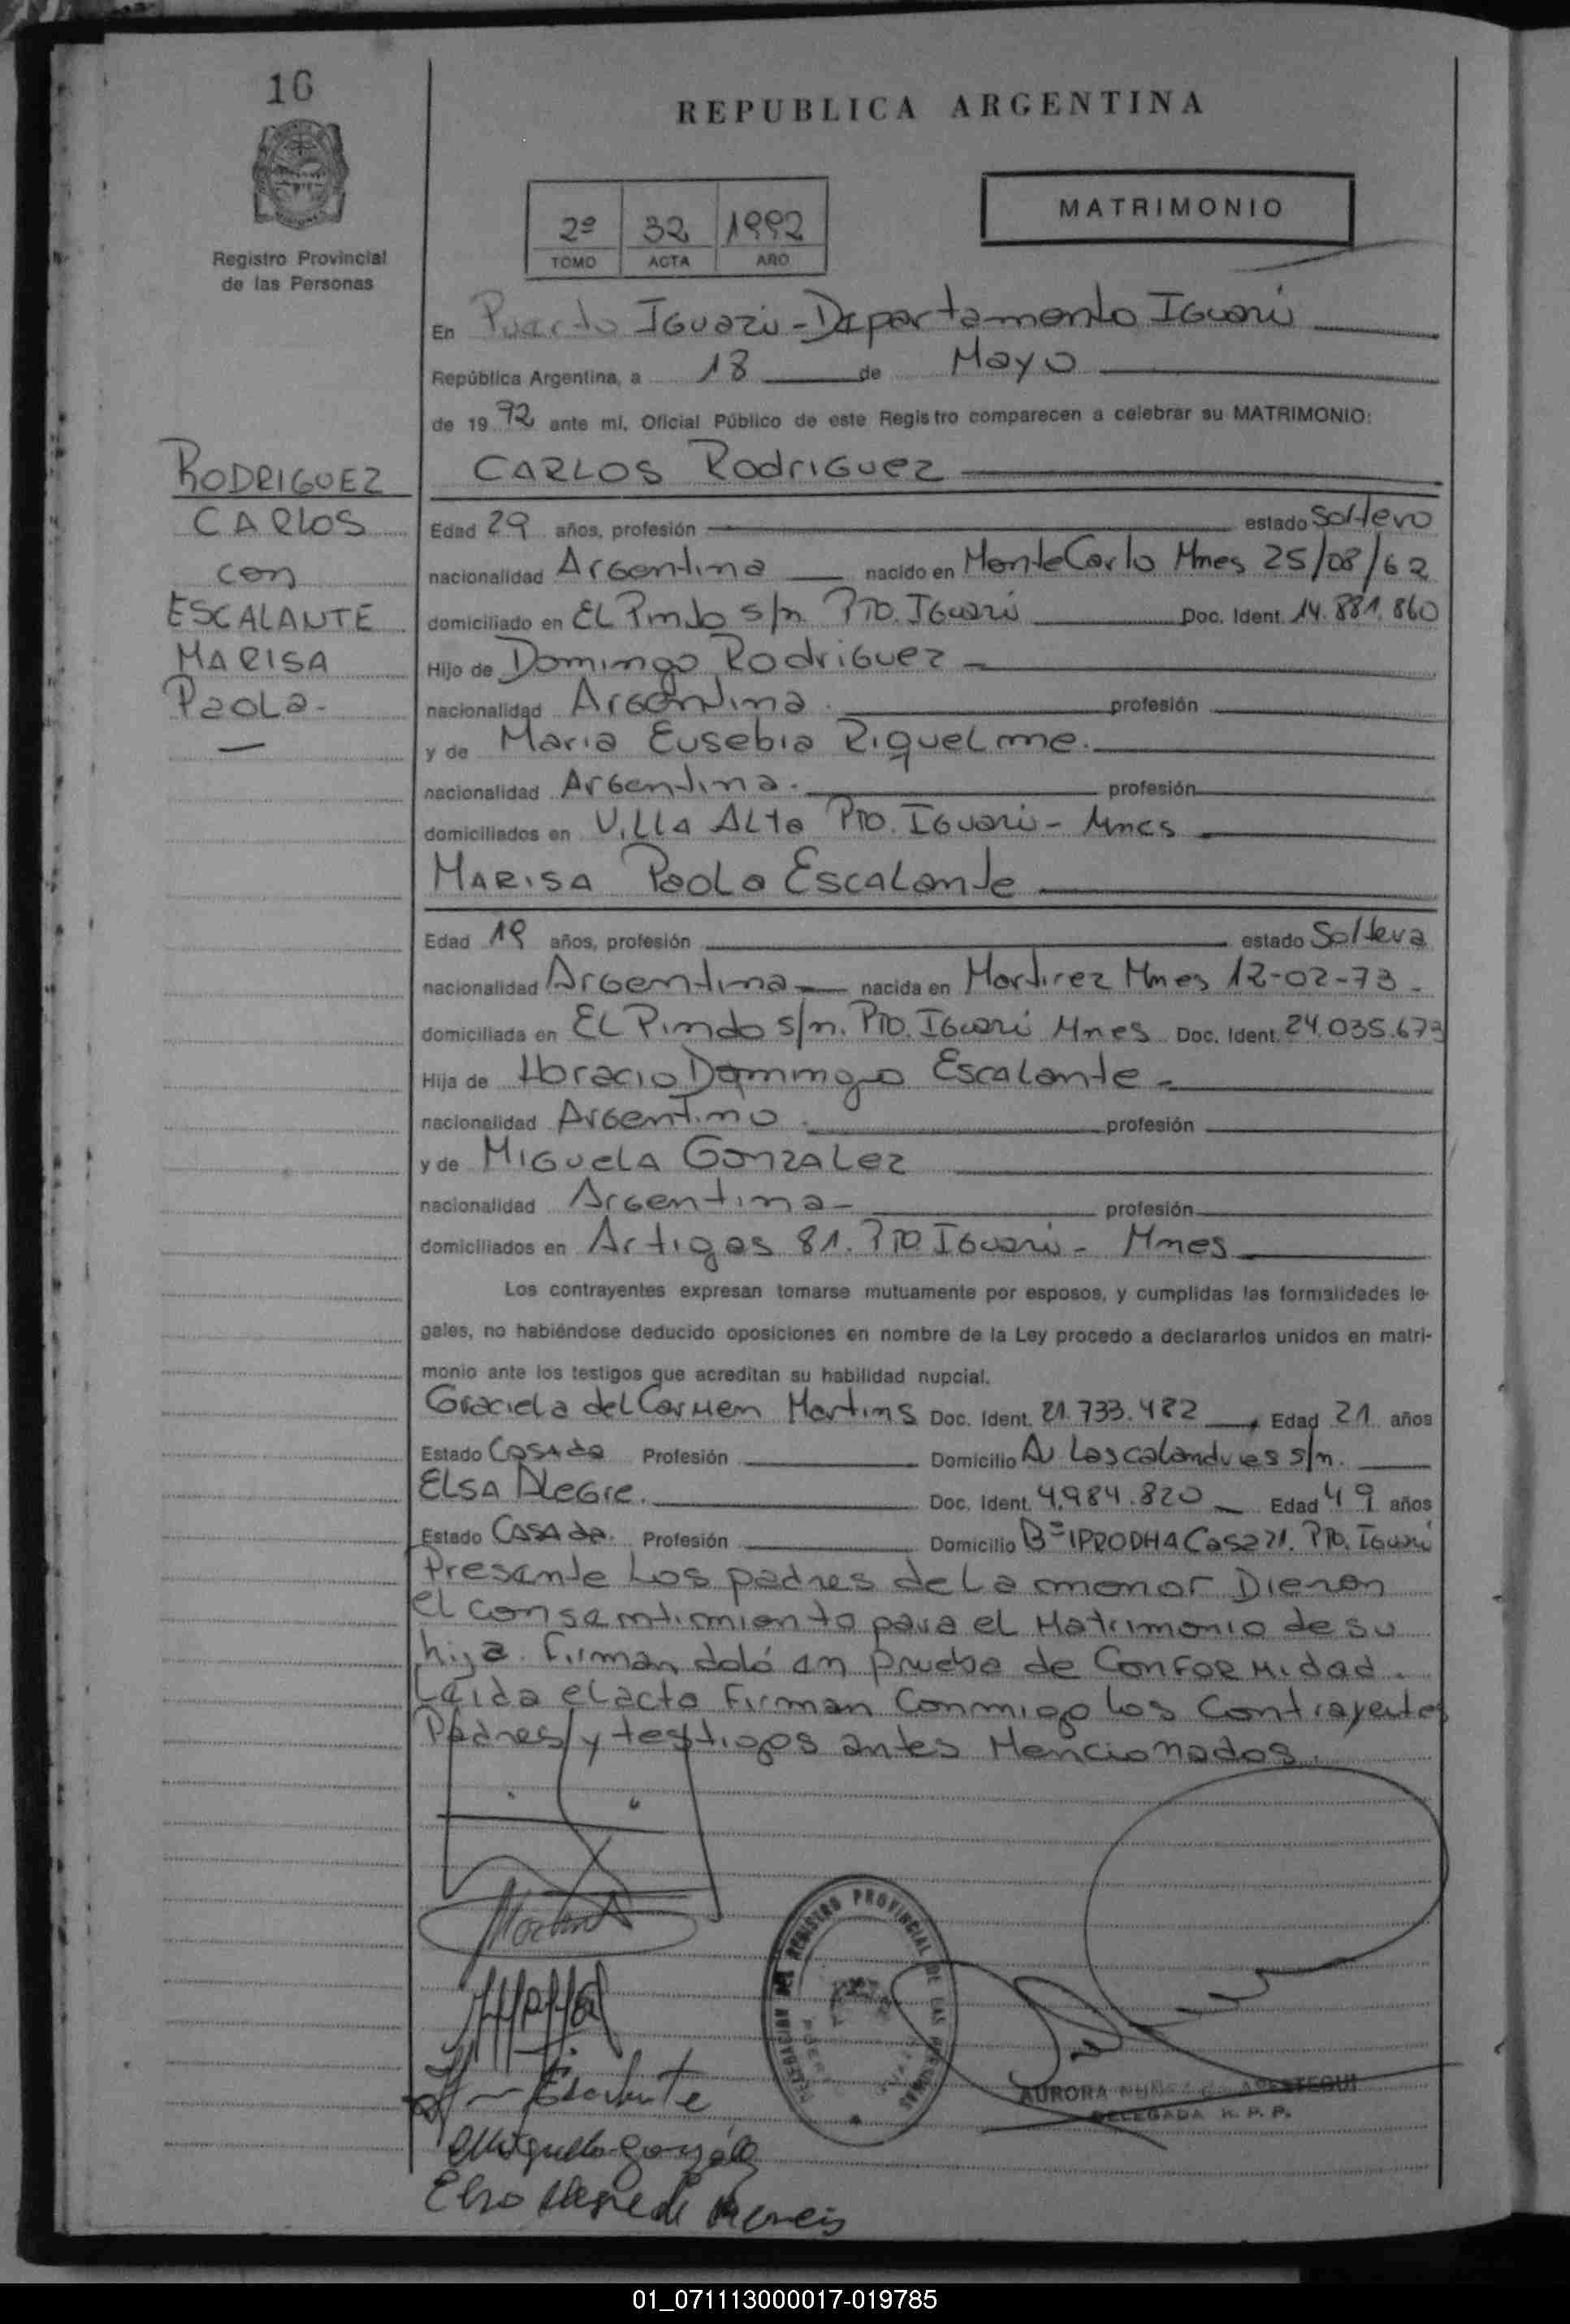 16
REPUBLICA ARGENTINA
MATRIMONIO
2º 32 1992
TOMO ACTA AÑO
Registro Provincial
de las Personas
En Puerto Iguazú - Departamento Iguazú
República Argentina, a 18 de Mayo
de 19 92 ante mi, Oficial Público de este Registro comparecen a celebrar su MATRIMONIO:
RODRIGUEZ
CARLOS
con
ESCALANTE
MARISA
Paola.-
CARLOS Rodriguez
Edad 29 años, profesión estado Soltero
nacionalidad Argentina nacido en MonteCarlo Mnes 25/08/62
domiciliado en El Pindo s/n Pto. Iguazú Doc. Ident. 14.881.860
Hijo de Domingo Rodriguez -
nacionalidad Argentina. profesión
y de Maria Eusebia Riquelme.
nacionalidad Argentina. profesión
domiciliados en Villa Alta Pto. Iguazú - Mnes
MARISA Paola Escalante
Edad 19 años, profesión estado Soltera
nacionalidad Argentina nacida en Martirez Mnes 12-02-73-
domiciliada en El Pindo s/n. Pto. Iguazú Mnes Doc. Ident. 24.035.673
Hija de Horacio Domingo Escalante -
nacionalidad Argentino. profesión
y de Miguela Gonzalez
nacionalidad Argentina- profesión
domiciliados en Artigas 81. Pto Iguazú - Mnes
Los contrayentes expresan tomarse mutuamente por esposos, y cumplidas las formalidades le-
gales, no habiéndose deducido oposiciones en nombre de la Ley procedo a declararlos unidos en matri-
monio ante los testigos que acreditan su habilidad nupcial.
Graciela del Carmen Martins Doc. Ident. 21.733.482, Edad 21 años
Estado Casada Profesión Domicilio Av Las calandries s/n.
Elsa Alegre. Doc. Ident. 4.984.820 Edad 49 años
Estado Casada. Profesión Domicilio Bº IPRODHA Casa 71. Pto. Iguazú
Presente Los padres de La menor Dieron
el consentimiento para el Matrimonio de su
hija. Firman dolo en prueba de Conformidad.
Leida el acta Firman Conmigo los Contrayentes
Padres y testigos antes Mencionados.
DELEGACION DEL REGISTRO PROVINCIAL DE LAS PERSONAS
Escalante
Miguela González
Elsa Alegre de
AURORA NUÑEZ
DELEGADA R. P. P.
01_071113000017-019785